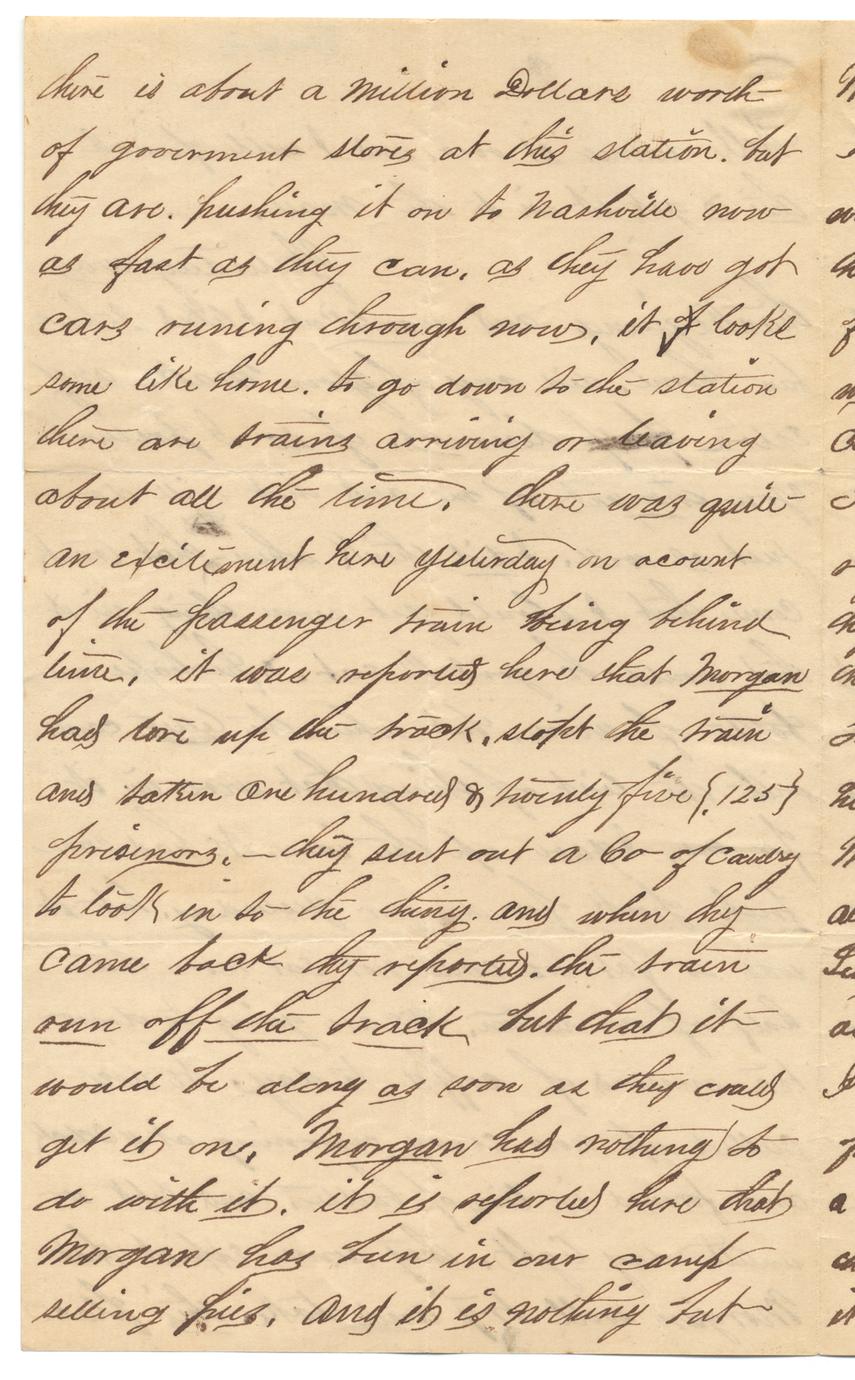 there is about a Million Dollars worth
of goverment stores at this station. but
they are. pushing it on to Nashville now
as fast as they can. as they have got
cars runing through now, it looks
some like home. to go down to the station
there are trains arriving or leaving
about all the time. there was quite
an excitement here yesterday on acount
of the passenger train being behind
time, it was reported here that Morgan
had tore up the track, stopt the train
and taken One hundred & twenty five {125}
prisinors. — they sent out a Co of cavelry
to look in to the thing. and when they
came back they reported. the train
run off the track but that it
would be along as soon as they could
get it on, Morgan had nothing to
do with it. it is reported here that
Morgan has bun in our camp
selling pies. And it is nothing but